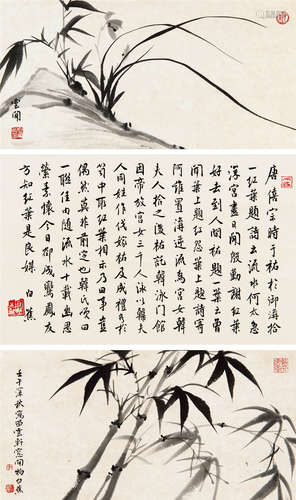 雲間
唐僖宗時于祐於御溝拾
一紅葉題詩云流水何太急
深宮盡日閒殷勤謝紅葉
好去到人間祐題一葉云曾
聞葉上題紅怨葉上題詩寄
阿誰置溝逆流為宮女韓
夫人拾之後祐託韓泳門館
因帝放宮女三千人泳以韓夫
人同姓作伐嫁祐及成禮各於
笥中取紅葉相示乃曰事豈
偶然莫非前定也韓氏索曰
一聯佳句隨流水十載幽思
縈素懷今日卻成鸞鳳友
方知紅葉是良媒 白蕉
壬午深秋寫
白蕉